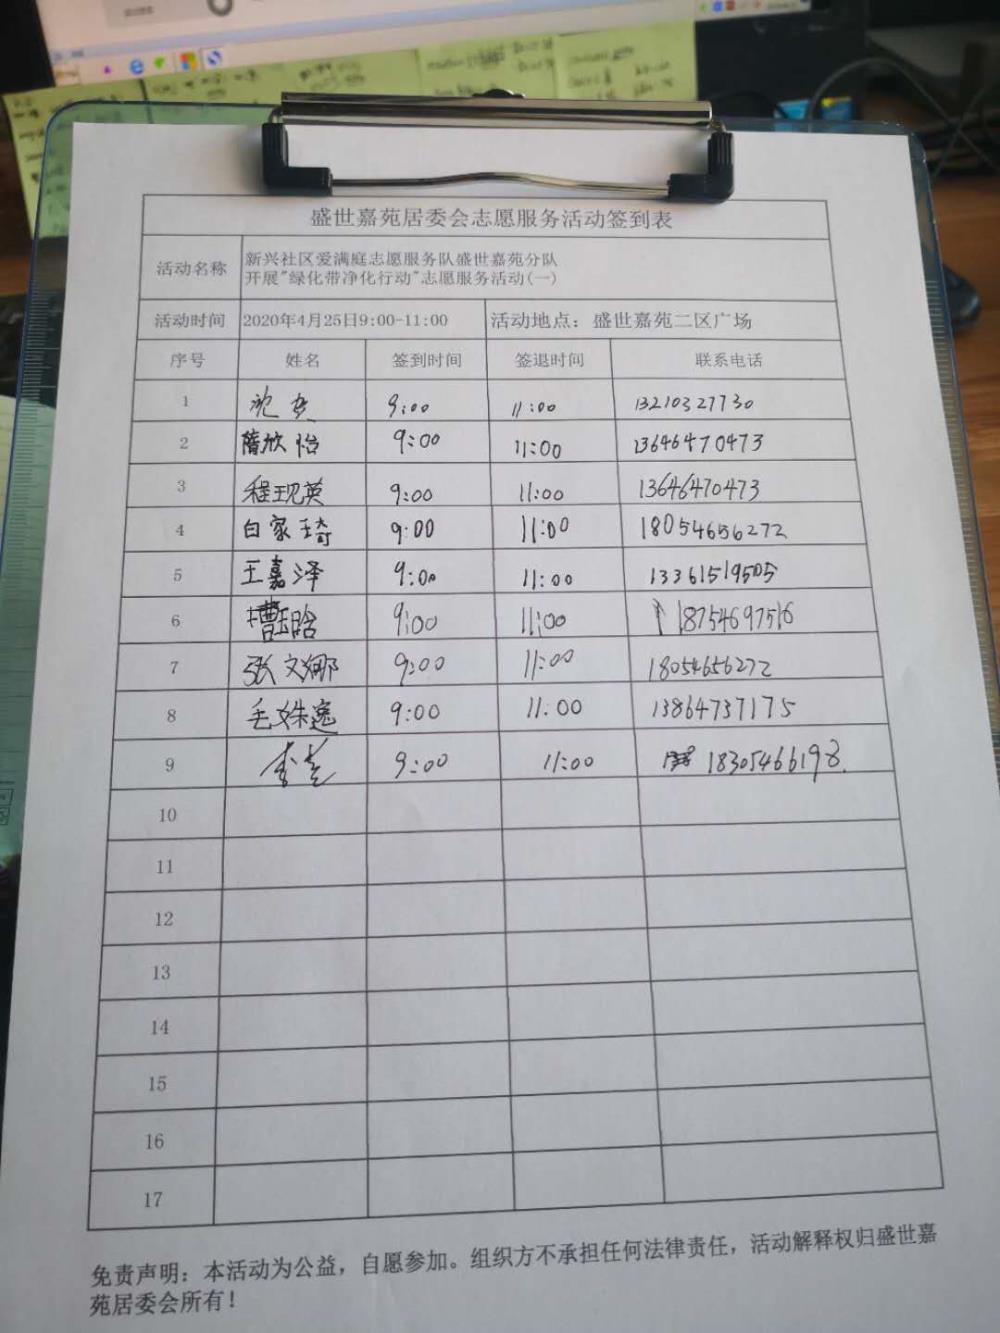 盛世嘉苑居委会志愿服务活动签到表
活动名称 新兴社区爱满庭志愿服务队盛世嘉苑分队
开展"绿化带净化行动"志愿服务活动(一)
活动时间 2020年4月25日9:00-11:00 活动地点：盛世嘉苑二区广场
序号 姓名 签到时间 签退时间 联系电话
1 9:00 11:00 13210327730
2 隋欣怡 9:00 11:00 13646470473
3 程现英 9:00 11:00 13646470473
4 白家琦 9:00 11:00 18054656272
5 王嘉泽 9:00 11:00 13361519505
6 9:00 11:00 18754697516
7 张文娜 9:00 11:00 18054656272
8 毛姝逸 9:00 11:00 13864737175
9 9:00 11:00 18305466198
10
11
12
13
14
15
16
17
免责声明：本活动为公益，自愿参加。组织方不承担任何法律责任，活动解释权归盛世嘉
苑居委会所有！